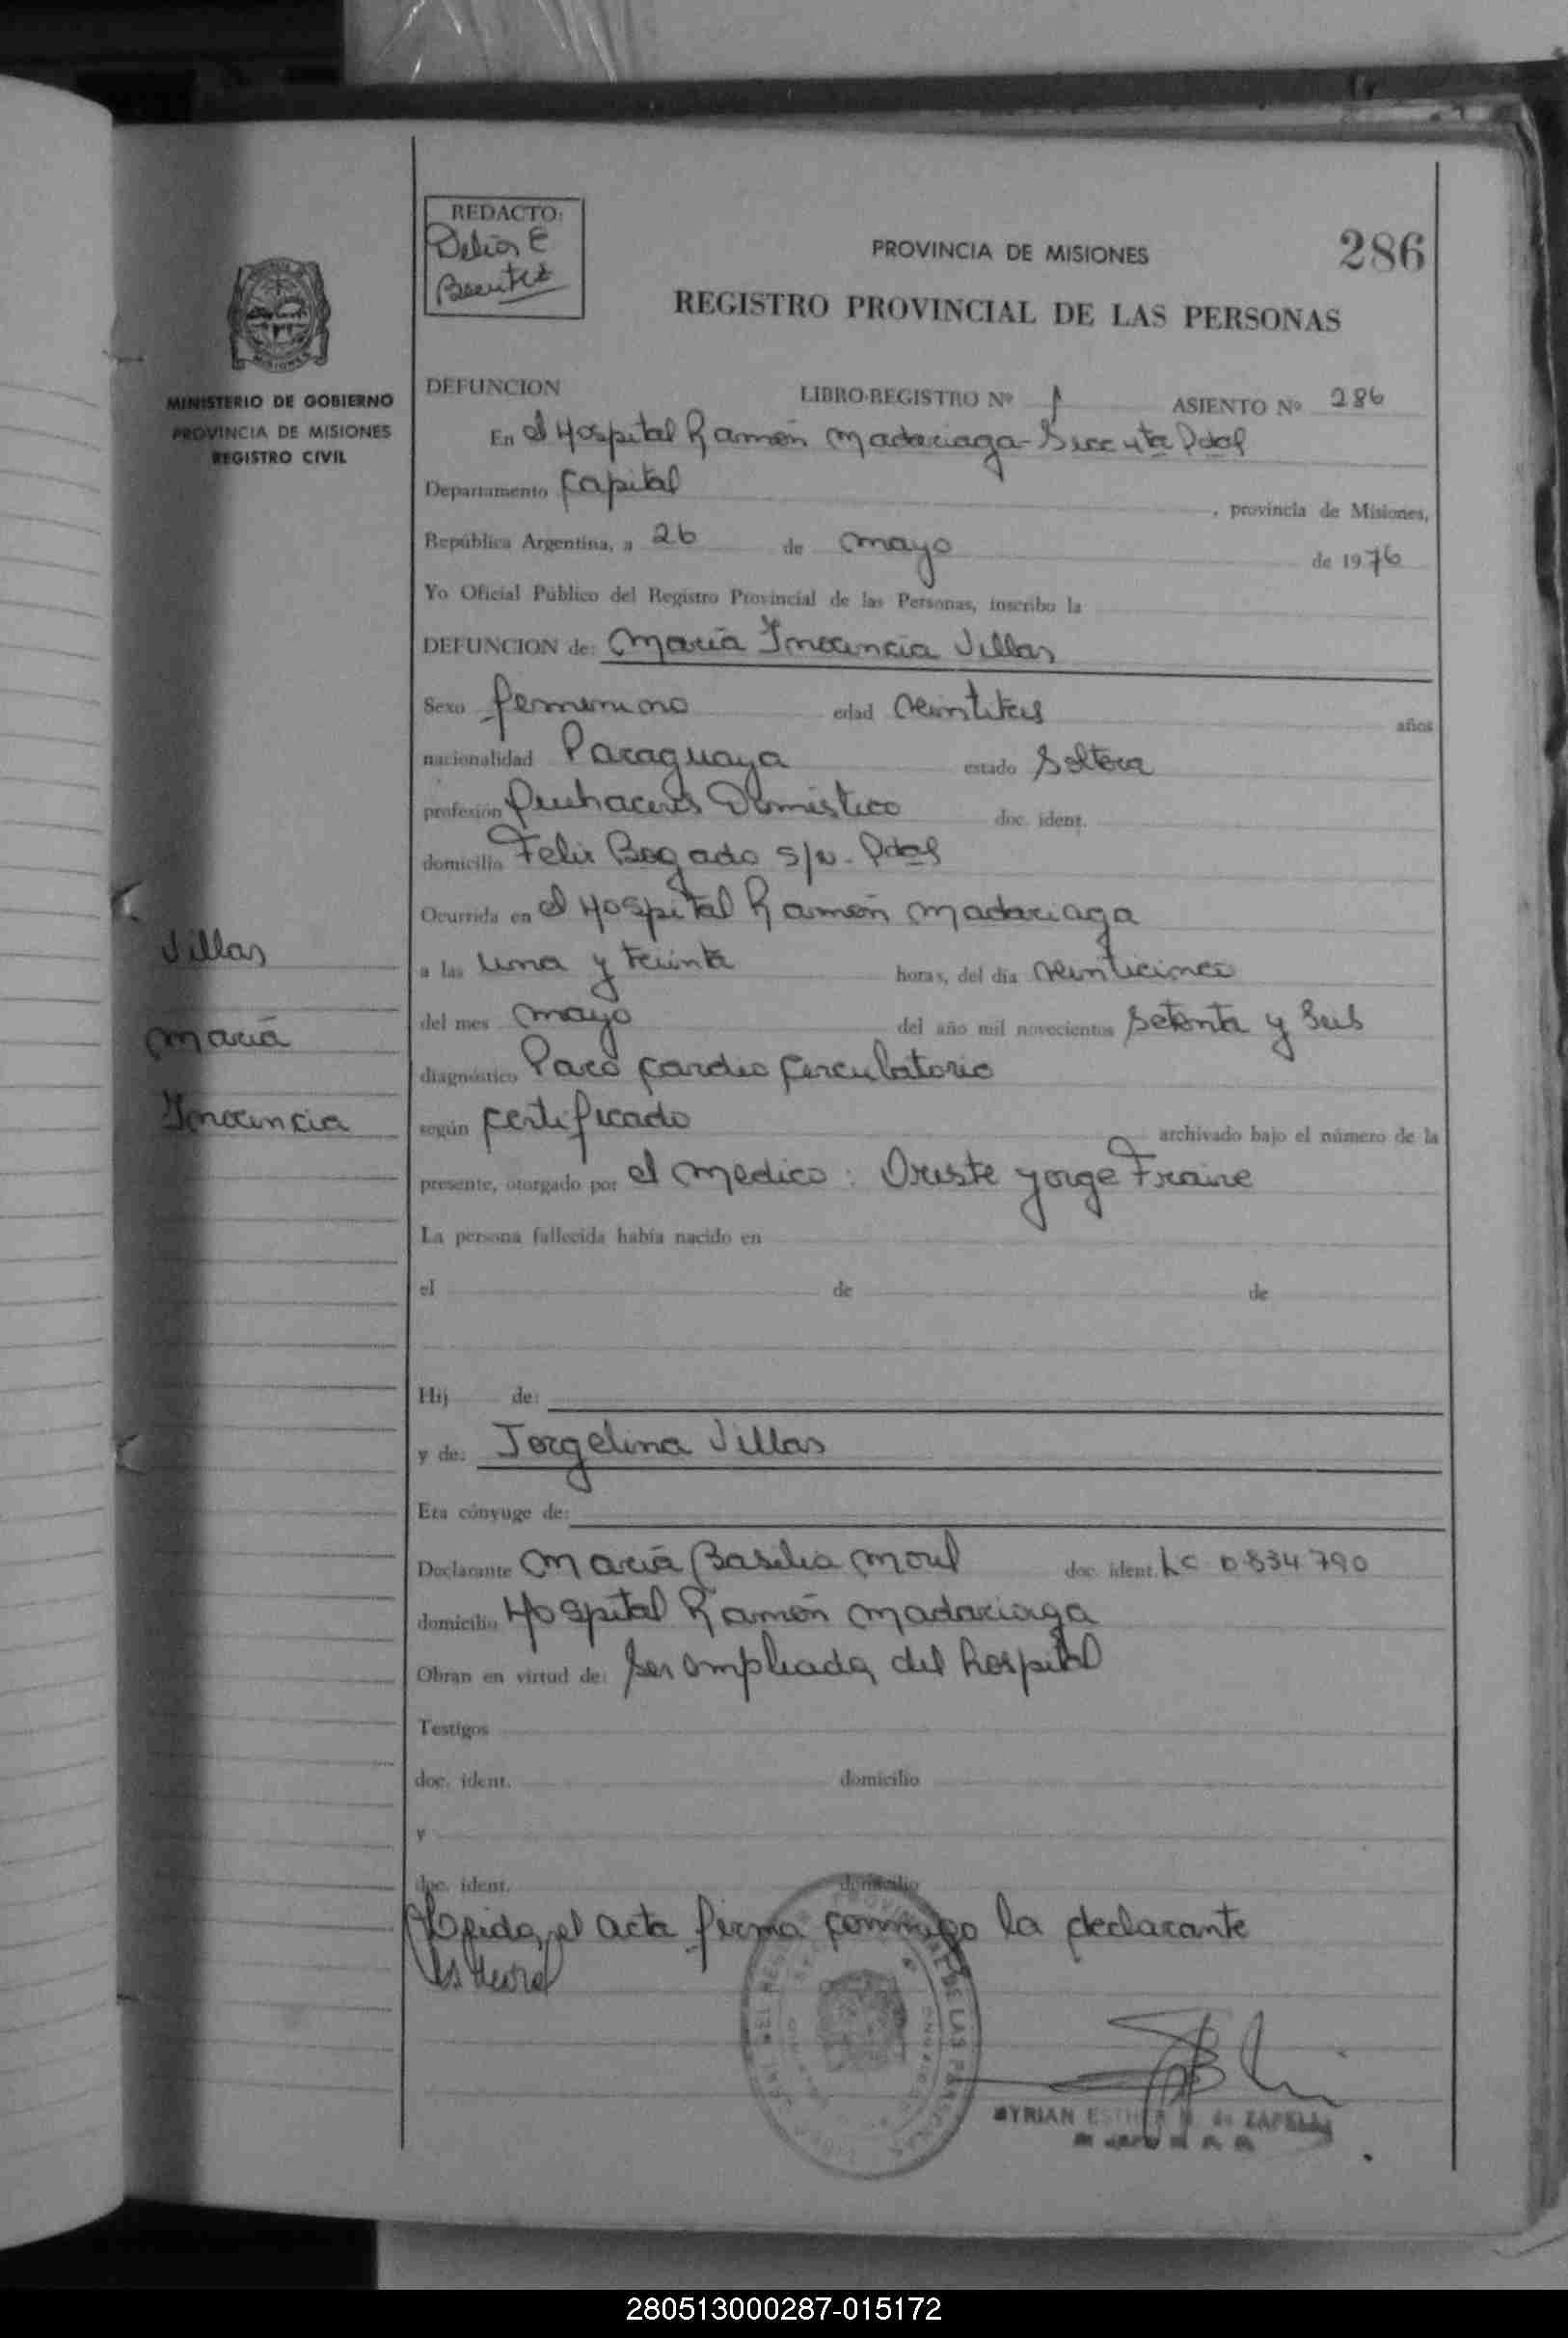 REDACTO:
Delia E
Benitez
PROVINCIA DE MISIONES
286
REGISTRO PROVINCIAL DE LAS PERSONAS
MINISTERIO DE GOBIERNO
PROVINCIA DE MISIONES
REGISTRO CIVIL
DEFUNCION LIBRO-REGISTRO Nº 1 ASIENTO Nº 286
En el Hospital Ramón Madariaga - Secc 4ta Pdas
Departamento Capital , provincia de Misiones,
República Argentina, a 26 de mayo de 1976
Yo Oficial Público del Registro Provincial de las Personas, inscribo la
DEFUNCION de: María Inocencia Villas
Sexo femenino edad veintitres años
nacionalidad Paraguaya estado Soltera
profesión Quehaceres Domestico doc. ident.
domicilio Felix Bogado s/n - Pdas
Ocurrida en el Hospital Ramón Madariaga
a las una y treinta horas, del día veinticinco
del mes mayo del año mil novecientos setenta y seis
diagnóstico Paro Cardio Circulatorio
según Certificado archivado bajo el número de la
presente, otorgado por el Medico: Oreste Jorge Fraire
La persona fallecida había nacido en
el de de
Hij de:
y de: Jorgelina Villas
Era cónyuge de:
Declarante María Basilia doc. ident. LC 0834790
domicilio Hospital Ramón Madariaga
Obran en virtud de: ser empleada del hospital
Testigos
doc. ident. domicilio
y
doc. ident. domicilio
el acta firma conmigo la declarante
Villas
María
Inocencia
DE LAS PERSONAS
MYRIAN ESTHER de ZAPELLI
280513000287-015172